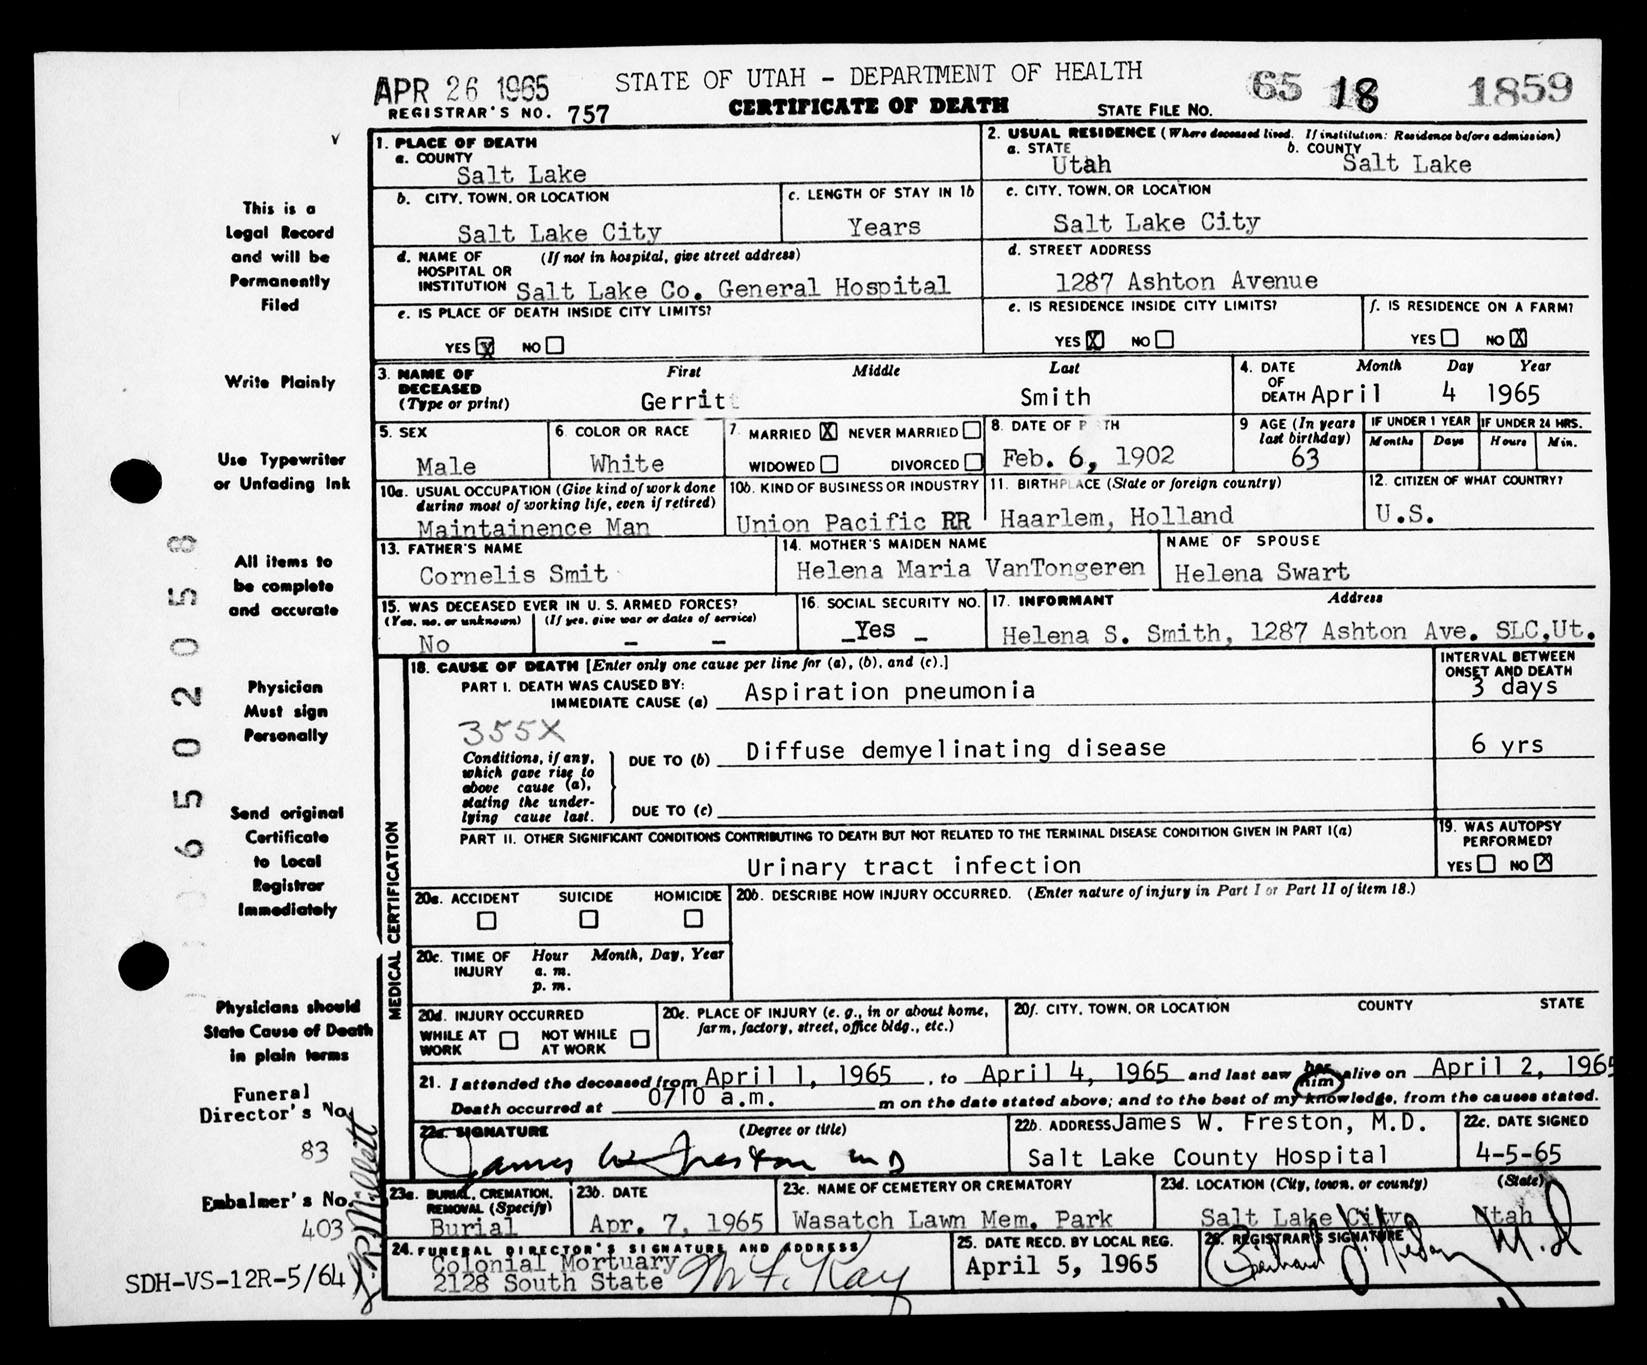 APR 26 1965
STATE OF UTAH - DEPARTMENT OF HEALTH
65 18 1859
REGISTRAR'S NO. 757
CERTIFICATE OF DEATH
STATE FILE NO.
This is a
Legal Record
and will be
Permanently
Filed
Write Plainly
Use Typewriter
or Unfading Ink
All items to
be complete
and accurate
Physician
Must sign
Personally
Send original
Certificate
to Local
Registrar
Immediately
Physicians should
State Cause of Death
in plain terms
Funeral
Director's No.
83
Embalmer's No.
403
SDH-VS-12R-5/64
6502058
1. PLACE OF DEATH
a. COUNTY
Salt Lake
2. USUAL RESIDENCE (Where deceased lived. If institution: Residence before admission)
a. STATE
Utah
b. COUNTY
Salt Lake
b. CITY, TOWN, OR LOCATION
Salt Lake City
c. LENGTH OF STAY IN 1b
Years
c. CITY, TOWN, OR LOCATION
Salt Lake City
d. NAME OF (If not in hospital, give street address)
HOSPITAL OR
INSTITUTION Salt Lake Co. General Hospital
d. STREET ADDRESS
1287 Ashton Avenue
e. IS PLACE OF DEATH INSIDE CITY LIMITS?
YES X NO
e. IS RESIDENCE INSIDE CITY LIMITS?
YES X NO
f. IS RESIDENCE ON A FARM?
YES NO X
3. NAME OF
DECEASED
(Type or print)
First Middle Last
Gerrit Smith
4. DATE
OF
DEATH
Month Day Year
April 4 1965
5. SEX
Male
6. COLOR OR RACE
White
7. MARRIED X NEVER MARRIED
WIDOWED DIVORCED
8. DATE OF B TH
Feb. 6, 1902
9 AGE (In years
last birthday)
63
IF UNDER 1 YEAR
Months Days
IF UNDER 24 HRS.
Hours Min.
10a. USUAL OCCUPATION (Give kind of work done
during most of working life, even if retired)
Maintainence Man
10b. KIND OF BUSINESS OR INDUSTRY
Union Pacific RR
11. BIRTHPLACE (State or foreign country)
Haarlem, Holland
12. CITIZEN OF WHAT COUNTRY?
U.S.
13. FATHER'S NAME
Cornelis Smit
14. MOTHER'S MAIDEN NAME
Helena Maria VanTongeren
NAME OF SPOUSE
Helena Swart
15. WAS DECEASED EVER IN U. S. ARMED FORCES?
(Yes, no, or unknown) (If yes, give war or dates of service)
No - -
16. SOCIAL SECURITY NO.
Yes
17. INFORMANT Address
Helena S. Smith, 1287 Ashton Ave. SLC,Ut.
MEDICAL CERTIFICATION
18. CAUSE OF DEATH [Enter only one cause per line for (a), (b), and (c).]
INTERVAL BETWEEN
ONSET AND DEATH
PART I. DEATH WAS CAUSED BY:
IMMEDIATE CAUSE (a) Aspiration pneumonia
3 days
355X
Conditions, if any,
which gave rise to
above cause (a),
stating the under-
lying cause last.
DUE TO (b) Diffuse demyelinating disease
6 yrs
DUE TO (c)
PART II. OTHER SIGNIFICANT CONDITIONS CONTRIBUTING TO DEATH BUT NOT RELATED TO THE TERMINAL DISEASE CONDITION GIVEN IN PART I(a)
Urinary tract infection
19. WAS AUTOPSY
PERFORMED?
YES NO X
20a. ACCIDENT SUICIDE HOMICIDE
20b. DESCRIBE HOW INJURY OCCURRED. (Enter nature of injury in Part I or Part II of item 18.)
20c. TIME OF
INJURY
Hour Month, Day, Year
a. m.
p. m.
20d. INJURY OCCURRED
WHILE AT
WORK
NOT WHILE
AT WORK
20e. PLACE OF INJURY (e. g., in or about home,
farm, factory, street, office bldg., etc.)
20f. CITY, TOWN, OR LOCATION COUNTY STATE
21. I attended the deceased from April 1, 1965, to April 4, 1965 and last saw her him alive on April 2, 1965
Death occurred at 0710 a.m. m on the date stated above; and to the best of my knowledge, from the causes stated.
22a. SIGNATURE (Degree or title)
James W Freston MD
22b. ADDRESS James W. Freston, M.D.
Salt Lake County Hospital
22c. DATE SIGNED
4-5-65
23a. BURIAL, CREMATION,
REMOVAL (Specify)
Burial
23b. DATE
Apr. 7, 1965
23c. NAME OF CEMETERY OR CREMATORY
Wasatch Lawn Mem. Park
23d. LOCATION (City, town, or county) (State)
Salt Lake City Utah
24. FUNERAL DIRECTOR'S SIGNATURE AND ADDRESS
Colonial Mortuary
2128 South State
25. DATE RECD. BY LOCAL REG.
April 5, 1965
26. REGISTRAR'S SIGNATURE
M.D